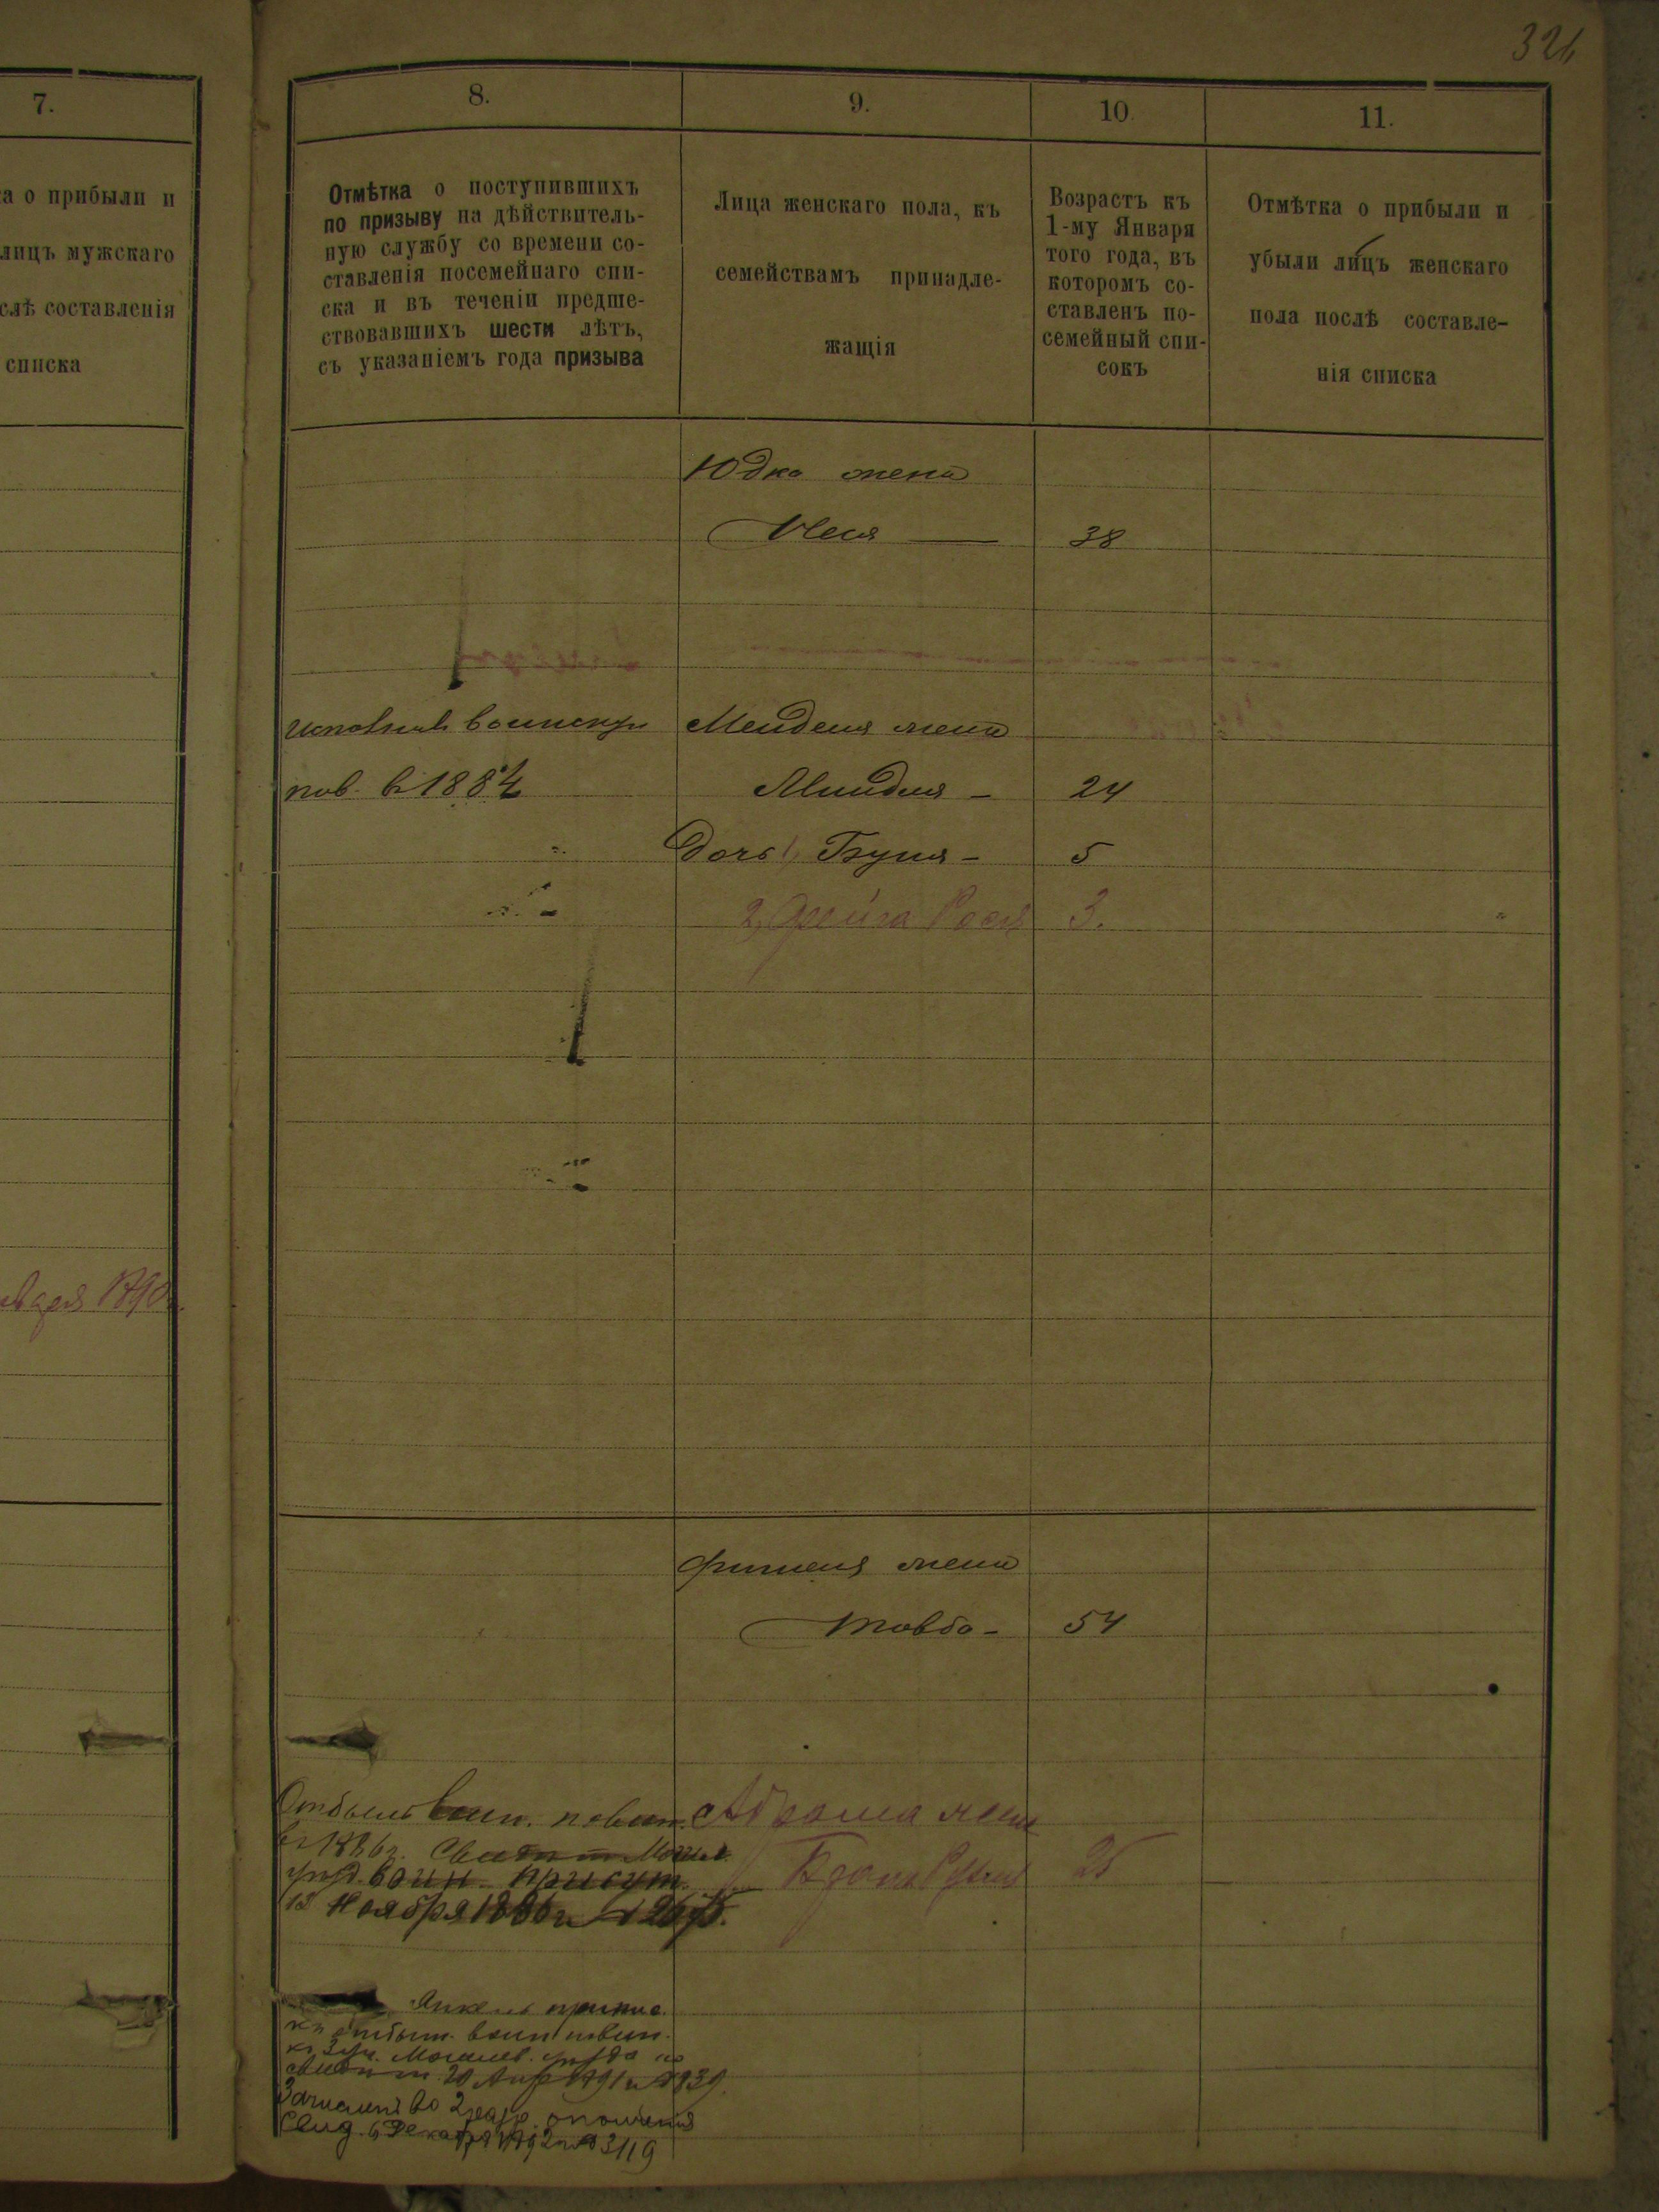 324
7.
а о прибыли и
лицъ мужскаго
слѣ составленія
списка
8.
9.
10.
11.
Отмѣтка о поступившихъ
по призыву на дѣйствитель-
ную службу со времени со-
ставленія посемейнаго спи-
ска и въ теченіи предше-
ствовавшихъ шести лѣтъ,
съ указаніемъ года призыва
Лица женскаго пола, къ
семействамъ принадле-
жащія
Возрастъ къ
1-му Января
того года, въ
которомъ со-
ставленъ по-
семейный спи-
сокъ
Отмѣтка о прибыли и
убыли лицъ женскаго
пола послѣ составле-
нія списка
Юдка жена
Меся — 38
воинскую Менделя жена
пов. въ 1884 Миндля - 24
Дочь 1, Буня - 5
2, Фейга Рося 3.
1890
Фишеля жена
Товба - 54
Отбылъ воин. повин. Абрама жена
въ 1886г. Свид. Могил.
уѣзд. воин. присут. 25
12 Ноября 1886 г. № 2675.
Янкель припис.
къ отбыт. воин повин.
къ 3 уч. Могилев. уѣзда
20 Апр 1891 г. № 839.
Зачисленъ во 2 разр. ополченія
Свид. 6 Декабря 1892 г. № 3119